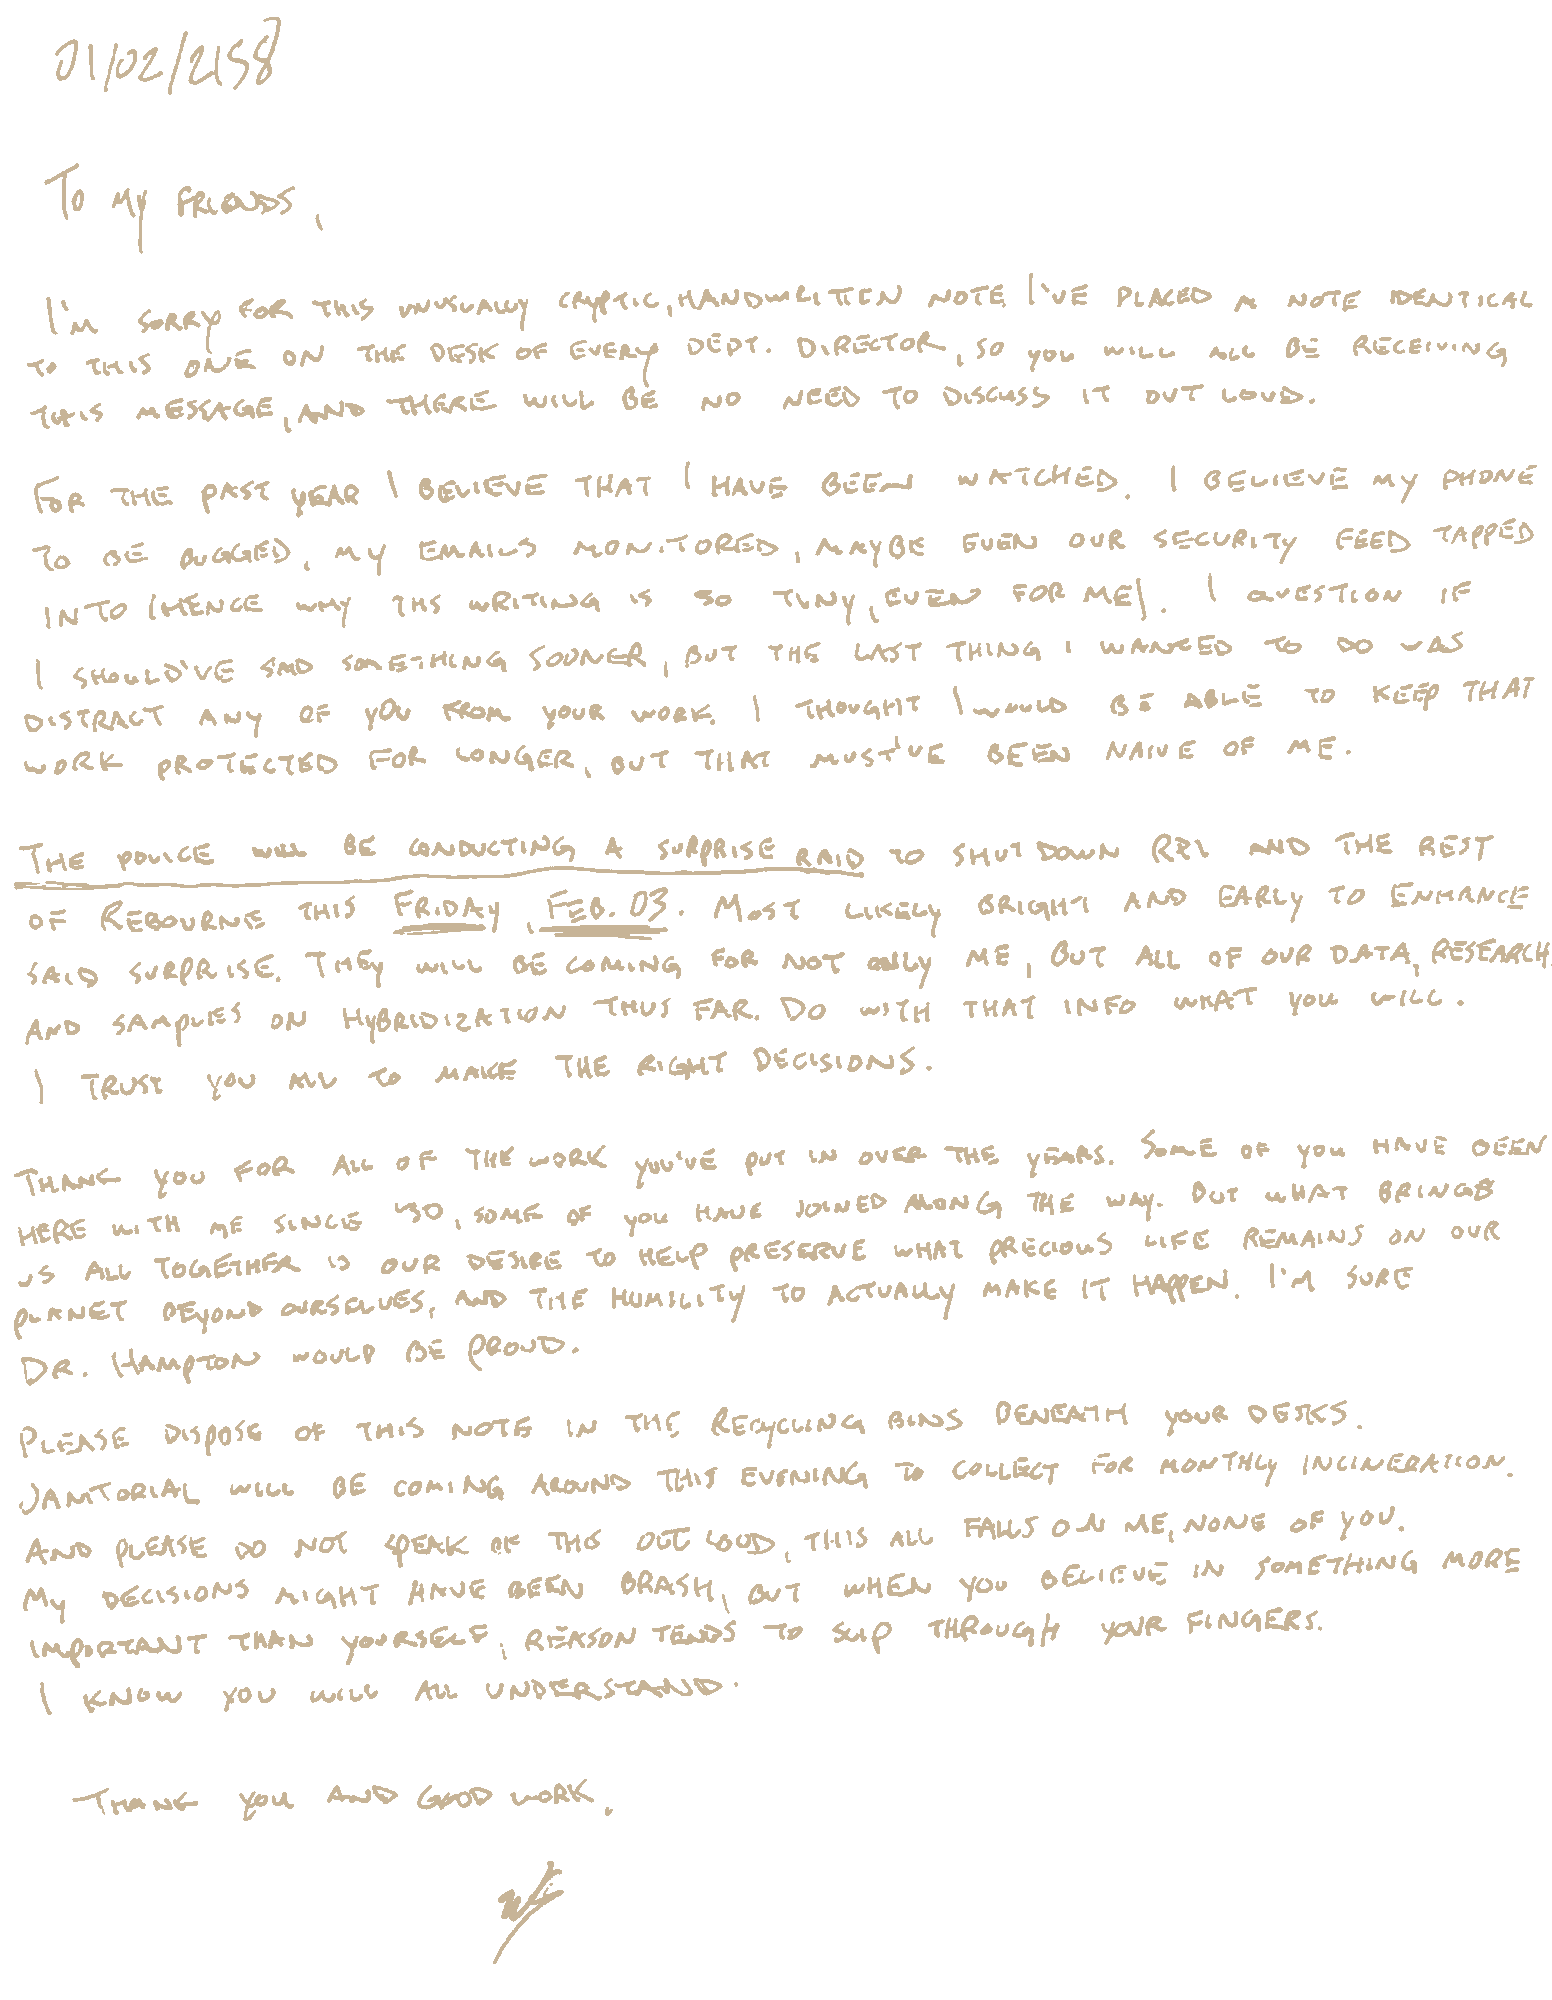 01/02/2158
To my friends,
I'm sorry for this unusually cryptic, handwritten note. I've placed a note identical
to this one on the desk of every dept. director, so you will all be receiving
this message, and there will be no need to discuss it out loud.
For the past year I believe that I have been watched. I believe my phone
to be bugged, my emails monitored, maybe even our security feed tapped
into (hence why ths writing is so tiny, even for me). I question if
I should've said something sooner, but the last thing I wanted to do was
distract any of you from your work. I thought I would be able to keep that
work protected for longer, but that must've been naive of me.
The police will be conducting a surprise raid to shut down RRI and the rest
of Rebourne this Friday, Feb. 03. Most likely bright and early to enhance
said surprise. They will be coming for not only me, but all of our data, research
and samples on hybridization thus far. Do with that info what you will.
I trust you all to make the right decisions.
Thank you for all of the work you've put in over the years. Some of you have been
here with me since '30, some of you have joined along the way. But what brings
us all together is our desire to help preserve what precious life remains on our
planet beyond ourselves, and the humility to actually make it happen. I'm sure
Dr. Hampton would be proud.
Please dispose of this note in the recycling bins beneath your desks.
Janitorial will be coming around this evening to collect for monthly incineration.
And please do not speak of this out loud, this all falls on me, none of you.
My decisions might have been brash, but when you believe in something more
important than yourself, reason tends to slip through your fingers.
I know you will all understand.
Thank you and good work,